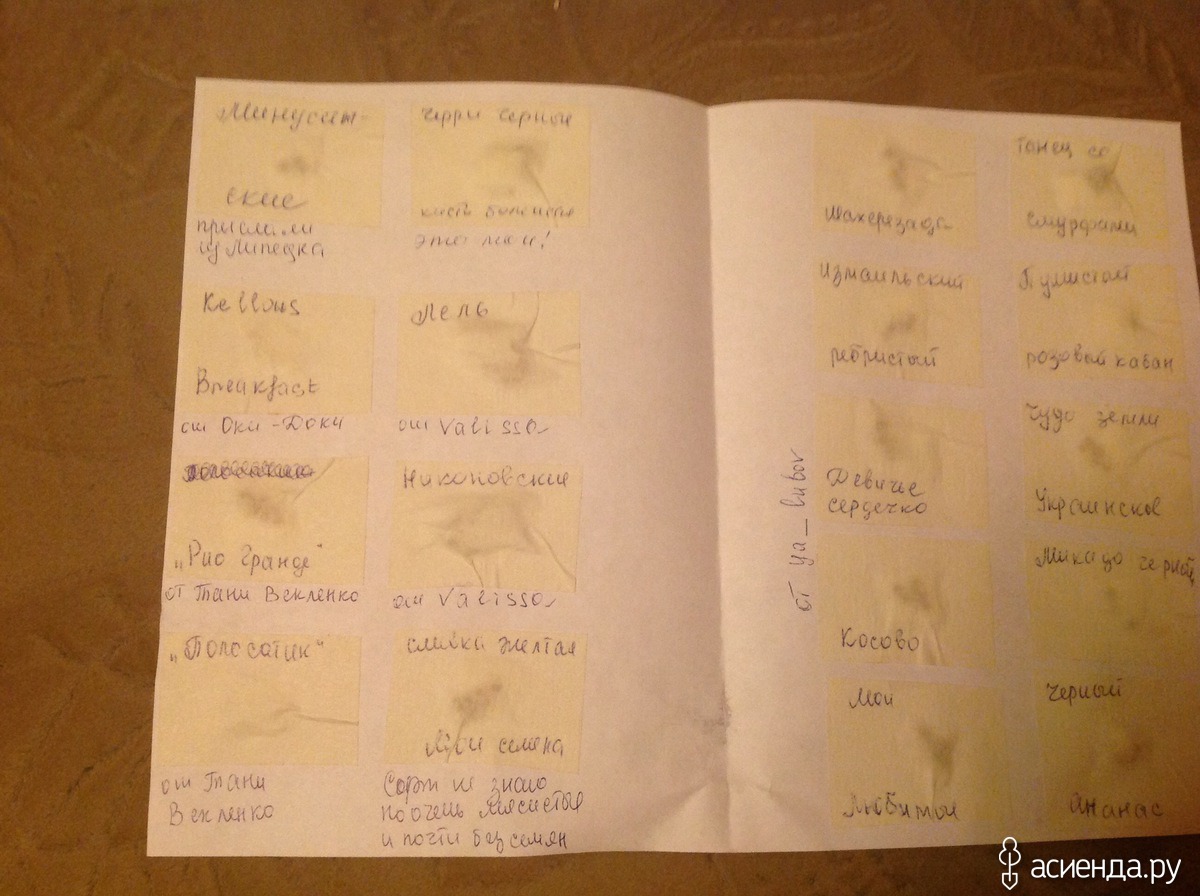 Минусин-
ские
прислали
из Липецка
Черри черный
кисть большая
это мои!
Kellous
Breakfast
от Оки-Доки
Лель
от Valisso
"Рио Гранде"
от Тани Векленко
Никоповские
от Valisso
"Полосатик"
от Тани
Векленко
сливки желтая
Мои семена
Сорт не знаю
но очень мясистые
и почти без семян
от ya_lubov
Шахерезада
Танец со
смурфами
Измаильский
ребристый
Пушистый
розовый кабан
Девичье
сердечко
Чудо земли
Украинское
Косово
Микадо черный
Мои
Любимые
Черный
Ананас
асиенда.ру